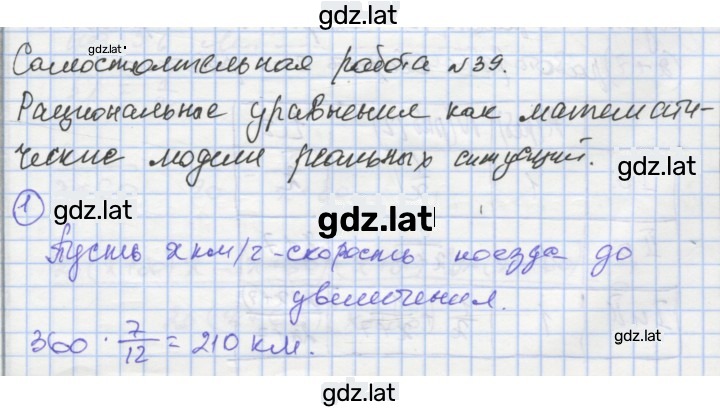 gdz.lat
gdz.lat
Самостоятельная работа №39.
Рациональные уравнения как математи-
ческие модели реальных ситуаций.
gdz.lat
1 gdz.lat
gdz.lat
Пусть x км/ч - скорость поезда до
увеличения.
360 · 7/12 = 210 км.
gdz.lat
gdz.lat